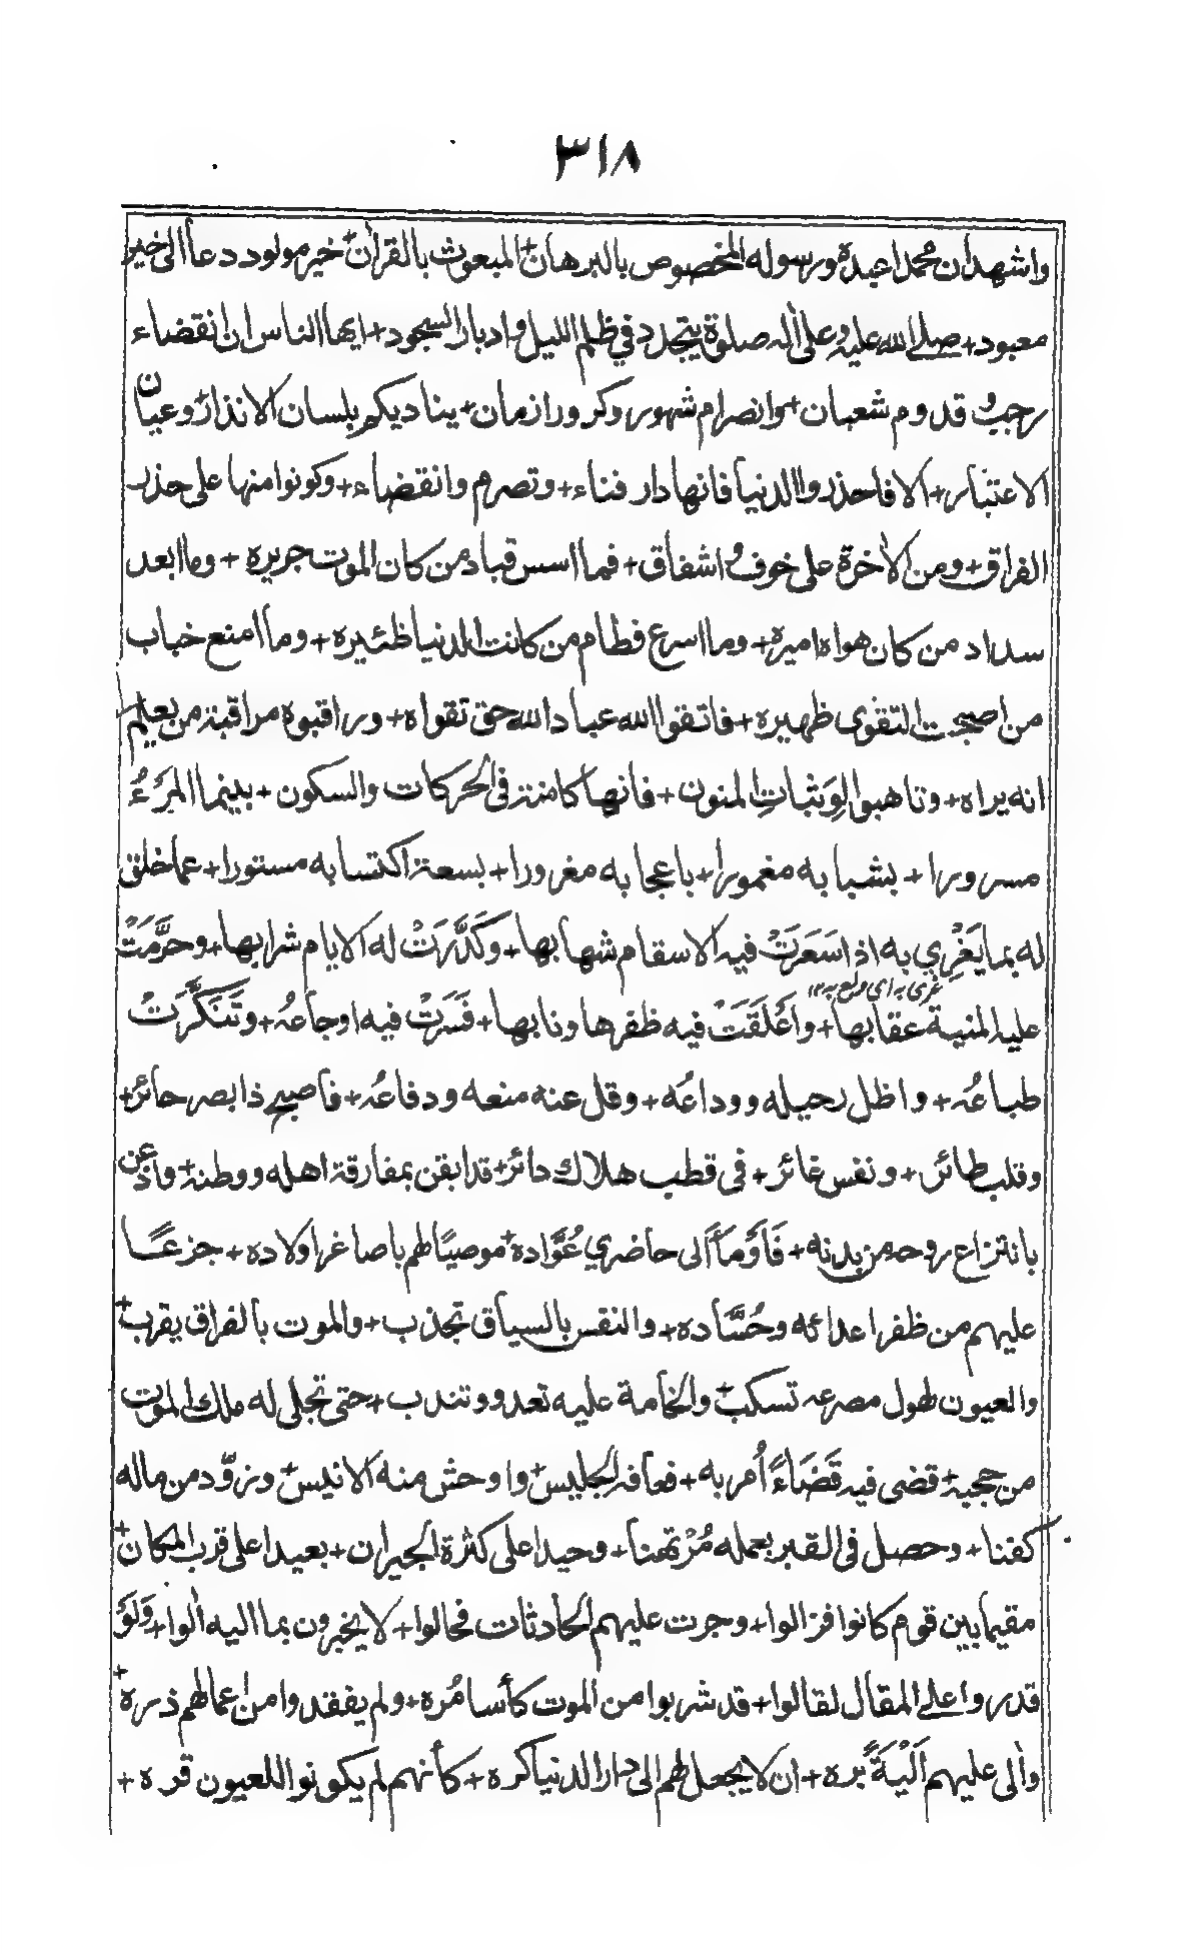 ٣١٨
واشهد ان محمدا عبده ورسوله المخصوص بالبرهان + المبعوث بالقرآن + خير مولود دعا الى خير
معبود + صلے الله عليه وعلى اٰله صلوة يتجدد في ظلم الليل وادبار السجود + ايها الناس ان انقضاء
رجب و قدوم شعبان + وانصرام شهور، وكرور ازمان + يناديكم بلسان الانذار + وعيان
الاعتبار + الا فاحذروا الدنيا فانها دار فناء + وتصرم وانقضاء + وكونوا منها على حذر
الفراق + ومن الاٰخرة على خوف و اشفاق + فما اسس قياد من كان الموت جريره + وما ابعد
سداد من كان هواه اميره + وما اسرع فطام من كانت الدنيا ظئيره + وما امنع خباب
من اصبحت التقوى ظهيره + فاتقوا الله عباد الله حق تقواه + وراقبوه مراقبة من يعلم
انه يراه + وتاهبوا لِوَثباتِ المنون + فانها كامنة فى الحركات والسكون + بينما المَرْءُ
مسرورا + بشبابه مغمورا + باعجابه مغرورا + بسعة اكتسابه مستورا + عما خلق
له بما يَغْرِي به اذا سَعَرَتْ فيه الاسقام شهابها + وكَدَّرَتْ له الايام شرابها + وحَرَّمَتْ
غرى به اي ولع به ١٢
عليه المنية عقابها + واعْلَقَتْ فيه ظفرها ونابها + فَسَرَتْ فيه اوجاعُه + وتَنَكَّرَتْ
طباعُه + واظل رحيله ووداعُه + وقل عنه منعه ودفاعُه + فاصبح ذا بصر حائر +
وقلب طائر + ونفس غائر + فى قطب هلاك دائر + قد ايقن بمفارقة اهله ووطنه + واذعن
بانتزاع روحه من بدنه + فَاَوْمَأَ الى حاضري عُوَّاده + موصيًا لهم باصاغر اولاده + جزعًا
عليهم من ظفر اعدائه وحُسَّاده + والنفس بالسياق تجذب + والموت بالفراق يقرب +
والعيون لهول مصرعه تسكب + والخامة عليه تعدد وتندب + حتى تجلى له ملك الموت
من حجبه + قضى فيه قَضَاءً اُمر به + فعافه الجليس + واوحش منه الانيس + وزوّد من ماله
كفنا + وحصل فى القبر بعمله مُرْتَهنا + وحيدا على كثرة الجيران + بعيدا على قرب المكان +
مقيما بين قوم كانوا فزالوا + وجرت عليهم الحادثات فحالوا + لا يخبرون بما اليه اٰلوا + وَلَوْ
قدروا علے المقال لقالوا + قد شربوا من الموت كأسا مُره + ولم يفقدوا من اعمالهم ذره +
واٰلى عليهم اَلْيَةً بره + ان لا يجعل لهم الى دار الدنيا كره + كأنهم لم يكونوا للعيون قره +